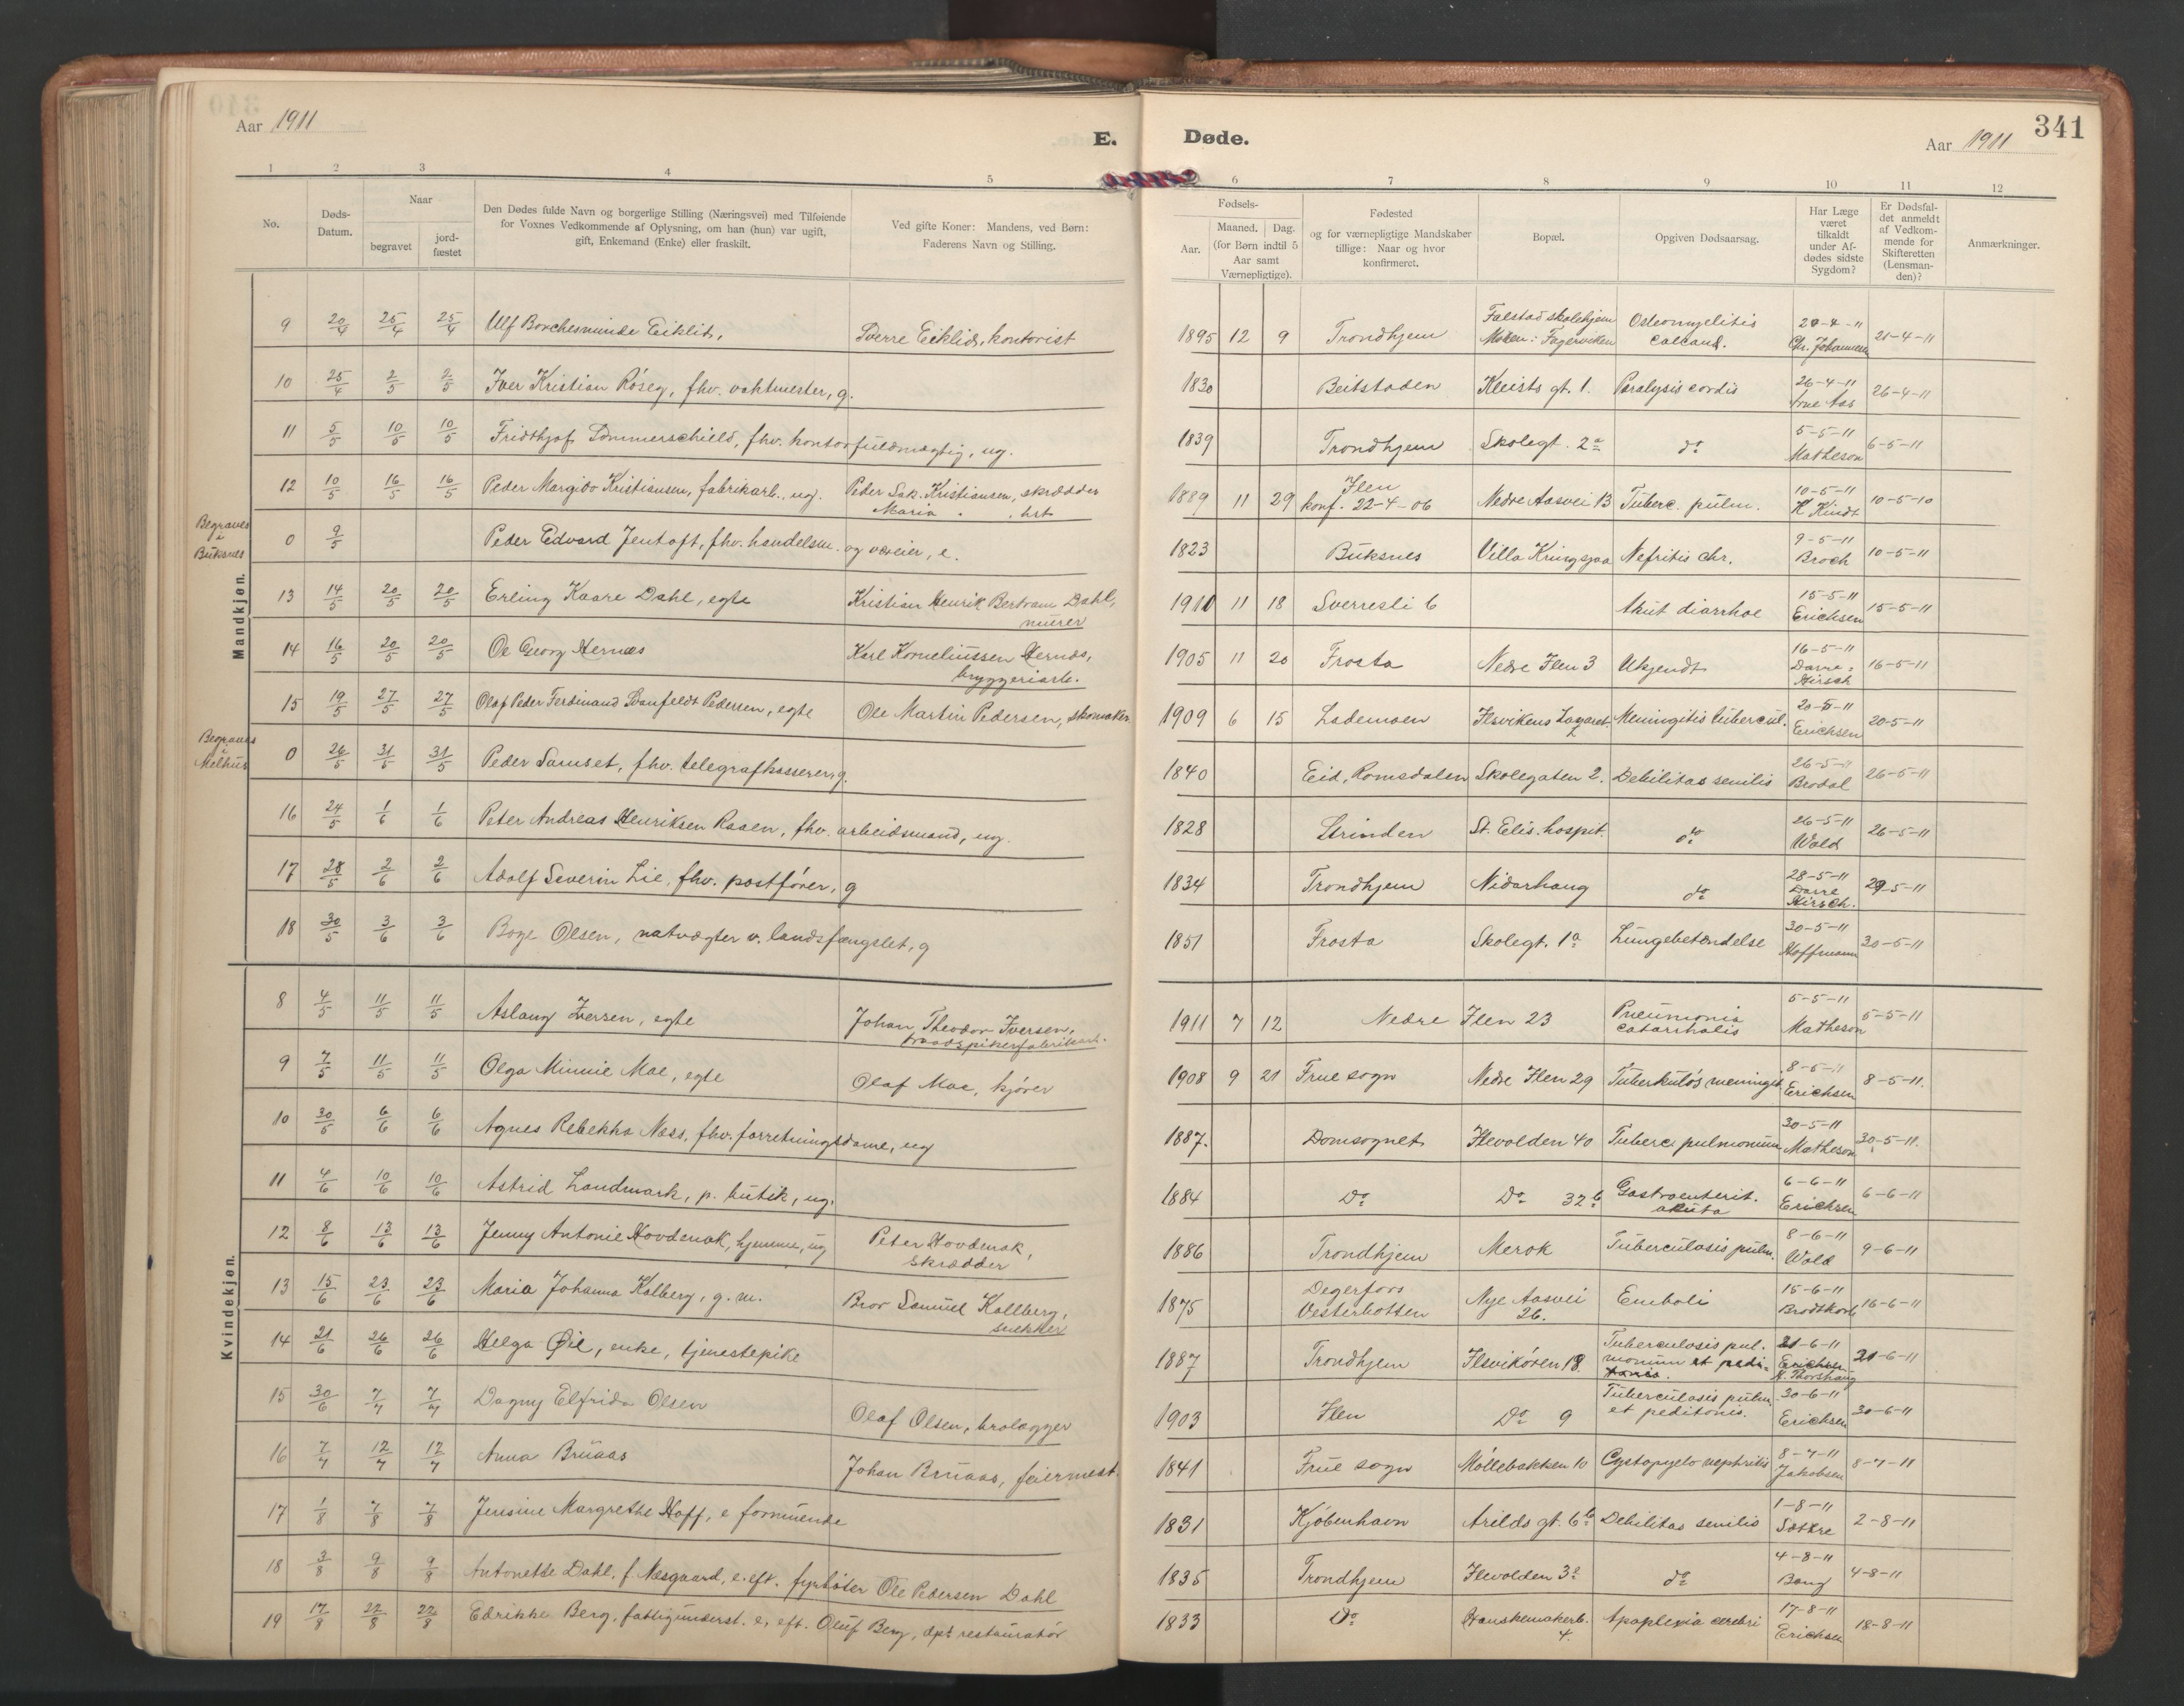 Aar 1911
E. Døde.
Aar 1911
341
1 2 3 4 5 6 7 8 9 10 11 12
No.
Døds-Datum.
Naar
begravet
jordfæstet
Den Dødes fulde Navn og borgerlige Stilling (Næringsvei) med Tilføiende
for Voxnes Vedkommende af Oplysning, om han (hun) var ugift,
gift, Enkemand (Enke) eller fraskilt.
Ved gifte Koner: Mandens, ved Børn:
Faderens Navn og Stilling.
Fødsels-
Aar.
Maaned. Dag.
(for Børn indtil 5
Aar samt
Værnepligtige).
Fødested
og for værnepligtige Mandskaber
tillige: Naar og hvor
konfirmeret.
Bopæl.
Opgiven Dødsaarsag.
Har Læge
været
tilkaldt
under Af-
dødes sidste
Sygdom?
Er Dødsfal-
det anmeldt
af Vedkom-
mende for
Skifteretten
(Lensman-
den)?
Anmærkninger.
Mandkjøn.
9 20/4 25/4 25/4 Ulf Borchesminde Eiklid, Sverre Eiklid, kontorist 1895 12 9 Trondhjem Falstad skolehjem Fagerviken Osteomyelitis calcand. 20-4-11 Chr. Johannessen 21-4-11
10 25/4 2/5 2/5 Iver Kristian Röseg, fhv. vaktmester, g. 1830 Beitstaden Kleists gt. 1. Paralysis cordis 26-4-11 Arne Aas 26-4-11
11 5/5 10/5 10/5 Fridthjof Sommerschield, fhv. kontorfuldmægtig, ug. 1839 Trondhjem Skolegt. 2a do 5-5-11 Matheson 6-5-11
12 10/5 16/5 16/5 Peder Margido Kristiansen, fabrikarb., ug. Peder Sak. Kristiansen, skrædder Maria " " hst 1889 11 29 Ilen konf. 22-4-06 Nedre Aasvei 13 Tuberc. pulm. 10-5-11 K Kindt 10-5-10
Begraves i Buksnes
0 9/5 Peder Edvard Jentoft, fhv. handelsm. og væreier, e. 1823 Buksnes Villa Kringsjaa Nefritis chr. 9-5-11 Broch 10-5-11
13 14/5 20/5 20/5 Erling Kaare Dahl, egte Kristian Henrik Bertram Dahl, murer 1910 11 18 Sverresli 6 Akut diarrhoe 15-5-11 Erichsen 15-5-11
14 16/5 20/5 20/5 Ole Georg Hernæs Karl Korneliussen Hernæs, bryggeriarb. 1905 11 20 Frosta Nedre Ilen 3 Ukjendt 16-5-11 Darre-Hirsch 16-5-11
15 19/5 27/5 27/5 Olaf Peder Ferdinand Svanfeldt Pedersen, egte Ole Martin Pedersen, skomaker 1909 6 15 Lademoen Ilsvikens Lazaret. Meningitis tubercul. 20-5-11 Erichsen 20-5-11
Begraves i Melhus
0 26/5 31/5 31/5 Peder Samset, fhv. telegrafkasserer, g. 1840 Eid, Romsdalen Skolegaten 2. Debilitas senilis 26-5-11 Brodal 26-5-11
16 24/5 1/6 1/6 Peter Andreas Henriksen Raaen, fhv. arbeidsmand, ug. 1828 Strinden St. Elis. hospit. do 26-5-11 Wold 26-5-11
17 28/5 2/6 2/6 Adolf Severin Lie, fhv. postfører, g 1834 Trondhjem Nidarhaug do 28-5-11 Darre Hirsch. 29-5-11
18 30/5 3/6 3/6 Boye Olsen, natvægter v. landsfængslet, g 1851 Frosta Skolegt. 1a Lungebetændelse 30-5-11 Hoffmann 30-5-11
Kvindekjøn.
8 4/5 11/5 11/5 Aslaug Iversen, egte Johan Theodor Iversen, traadspikerfabrikarb. 1911 7 12 Nedre Ilen 23 Pneumonia catarrhalis 5-5-11 Matheson 5-5-11
9 7/5 11/5 11/5 Olga Minnie Moe, egte Olaf Moe, kjører 1908 9 21 Frue sogn Nedre Ilen 29 Tuberkuløs meningit. 8-5-11 Erichsen 8-5-11.
10 30/5 6/6 6/6 Agnes Rebekka Næss, fhv. forretningsdame, ug 1887. Domsognet Ilevolden 40 Tuberc. pulmonum 30-5-11 Matheson 30-5-11.
11 4/6 10/6 10/6 Astrid Landmark, p. butik, ug. 1884 Do Do 32b Gastroenterit. akuta 6-6-11 Erichsen 6-6-11
12 8/6 13/6 13/6 Jenny Antonie Hovdenak, hjemme, ug Peter Hovdenak, skrædder 1886 Trondhjem Merok Tuberculosis pulm. 8-6-11 Wold 9-6-11
13 15/6 23/6 23/6 Maria Johanna Kalberg, g. m. Bror Samuel Kallberg, snekker 1875 Degerfors Vesterbotten Nye Aasvei 26. Emboli 15-6-11 Brodtkorb 16-6-11
14 21/6 26/6 26/6 Helga Øie, enke, tjenestepike 1887 Trondhjem Ilsvikøren 18. Tuberculosis pulmonum et peditonis. 21-6-11 Erichsen K. Thorshaug 21-6-11
15 30/6 7/7 7/7 Dagny Elfrida Olsen Olaf Olsen, brolægger 1903 Ilen Do 9 Tuberculosis pulm. et peditonis. 30-6-11 Erichsen 30-6-11
16 7/7 12/7 12/7 Anna Bruaas Johan Bruaas, feiermest. 1841 Frue sogn Møllebakken 10 Cystopyelo nephritis 8-7-11 Jakobsen 8-7-11
17 1/8 7/8 7/8 Jensine Margrethe Hoff, e formuende 1831 Kjøbenhavn Arilds gt. 6b Debilitas senilis 1-8-11 Sættre 2-8-11
18 3/8 9/8 9/8 Antonette Dahl, f. Næsgaard, e. eft. fyrbøter Ole Pedersen Dahl 1835 Trondhjem Ilevolden 3e do 4-8-11 Bang 4-8-11
19 17/8 22/8 22/8 Edrikke Berg, fattigunderst. e. eft. Oluf Berg, dpt restauratør 1833 Do Hanskemakerb. 4. Apoplexia cerebri 17-8-11 Erichsen 18-8-11